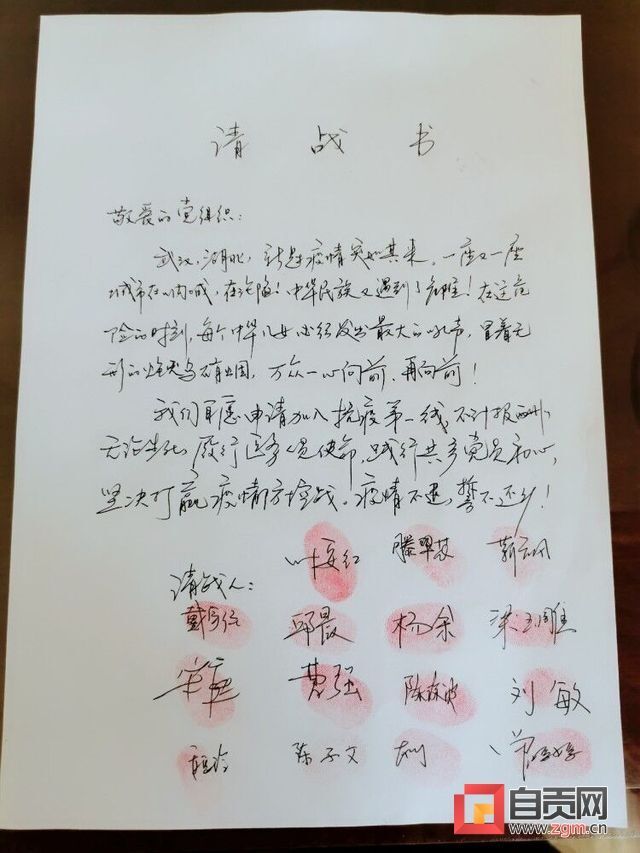 请战书
敬爱的党组织:
武汉,湖北,新冠疫情突如其来,一座又一座
城市在呐喊,在沦陷!中华民族又遇到了危难!在这危
险的时刻,每个中华儿女必须发出最大的吼声,冒着无
形的炮火勇往直前,万众一心向前、再向前!
我们自愿申请加入抗疫第一线,不计报酬,
无论生死,履行医务人员使命,践行共产党员初心,
坚决打赢疫情防控战。疫情不退,誓不还乡!
请战人:
杨余
黄强 刘敏
陈子文
自贡网
www.zgm.cn